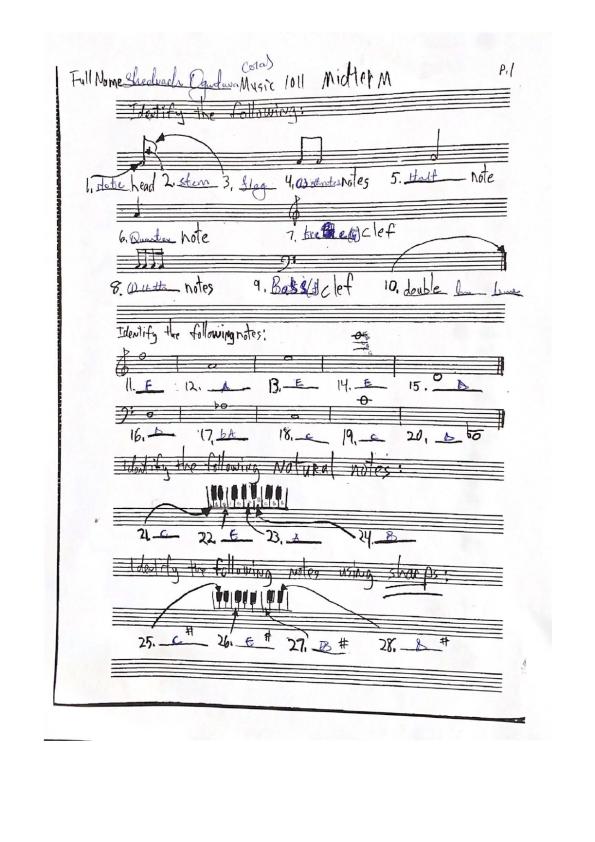 P.1
Full Name Music 1011 Midterm
Identify the following:
1. Note head 2. Stem 3. flag 4. notes 5. Half note
6. Quarter note 7. treble(G) clef
8. notes 9. Bass(f) clef 10. double
Identify the following notes:
11. E 12. A 13. E 14. E 15. D
16. D 17. bA 18. C 19. C 20. D
Identify the following Natural notes:
21. C 22. E 23. A 24. B
Identify the following notes using sharps:
25. C # 26. E # 27. B # 28. #